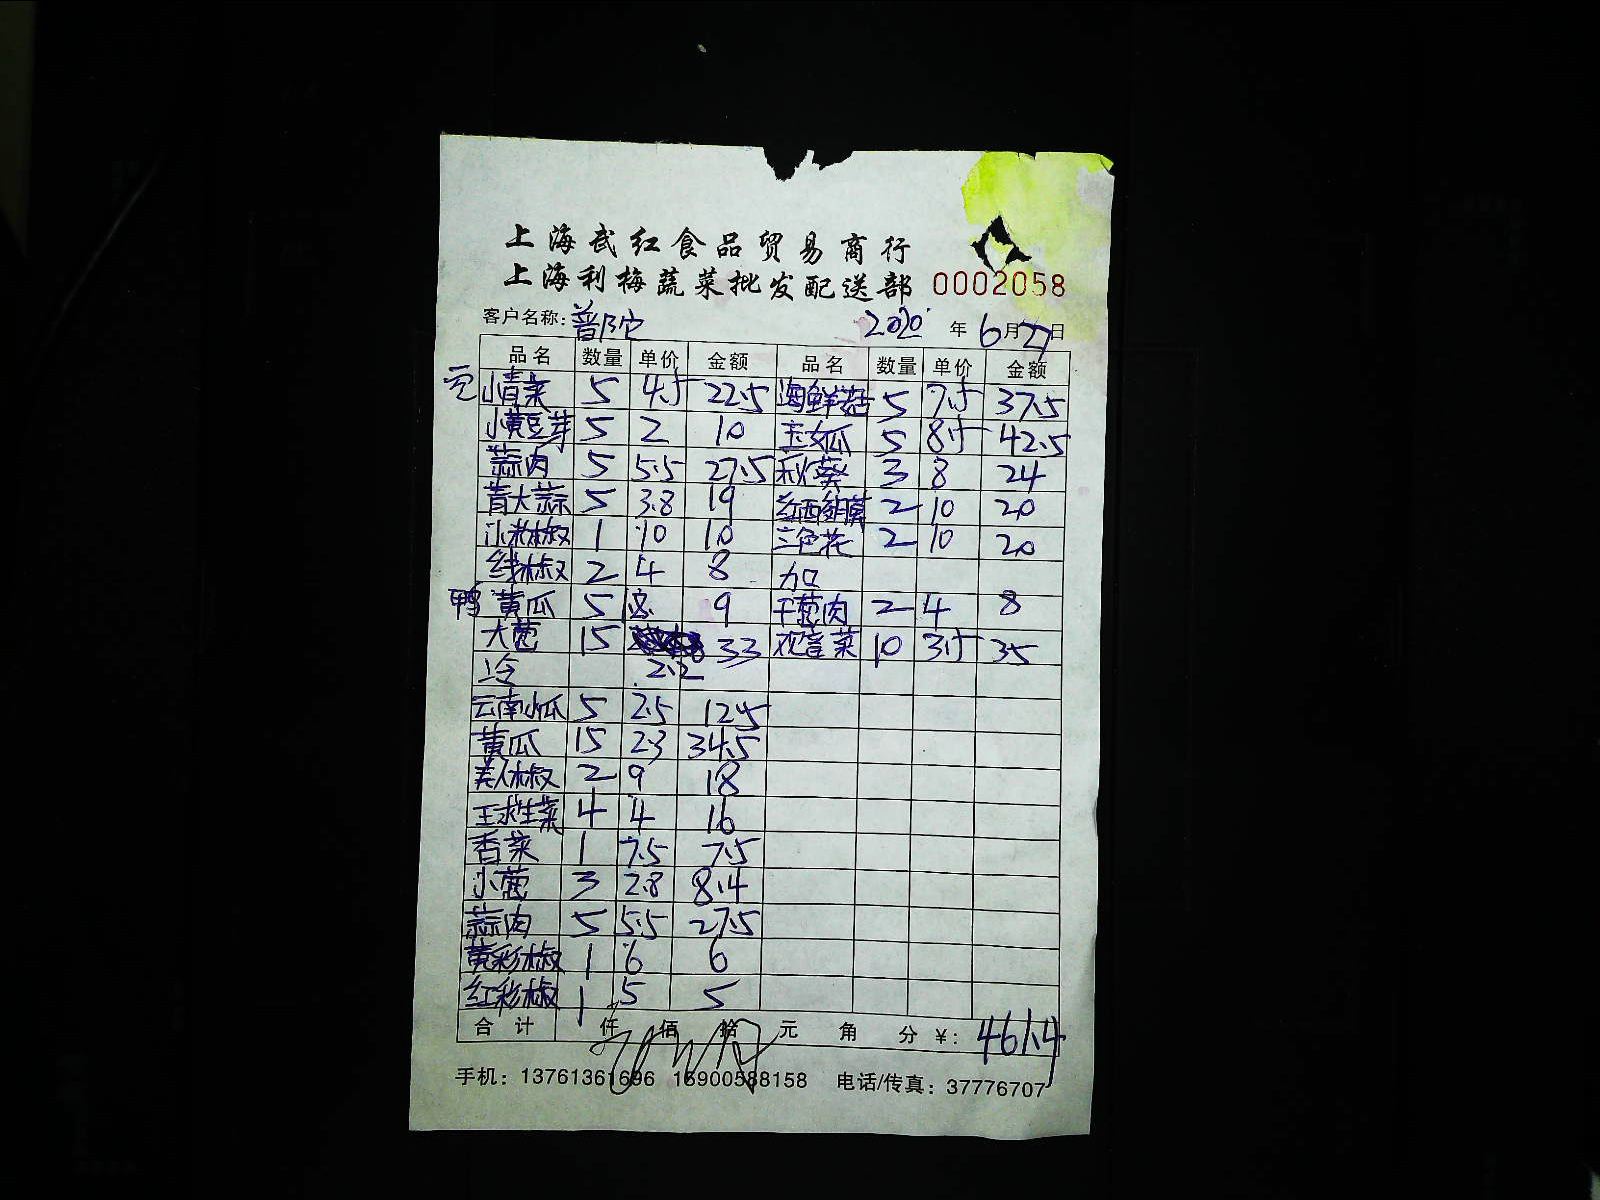 上海武红食品贸易商行
上海利梅蔬菜批发配送部 0002058
客户名称: 普陀 2020 年 6 月 27 日
品名 数量 单价 金额 品名 数量 单价 金额
小青菜 5 4.5 22.5 海鲜菇 5 7.5 37.5
小黄豆芽 5 2 10 玉女瓜 5 8.5 42.5
蒜肉 5 5.5 27.5 秋葵 3 8 24
青大蒜 5 3.8 19 2 10 20
小米椒 1 10 10 三色花 2 10 20
线椒 2 4 8 加
鸭 黄瓜 5 9 干葱肉 2 4 8
大葱 15 33 10 3.5 35
冷 2.2
云南小瓜 5 2.5 12.5
黄瓜 15 2.3 34.5
美人椒 2 9 18
王求生菜 4 4 16
香菜 1 7.5 7.5
小葱 3 2.8 8.4
蒜肉 5 5.5 27.5
黄彩椒 1 6 6
红彩椒 1 5 5
合计 仟 佰 拾 元 角 分 ¥: 461.4
手机: 13761361696 15900588158 电话/传真: 37776707